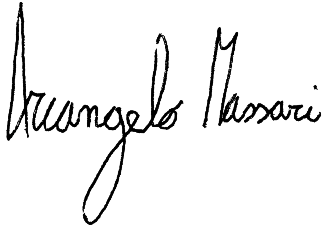 Arcangelo Massari